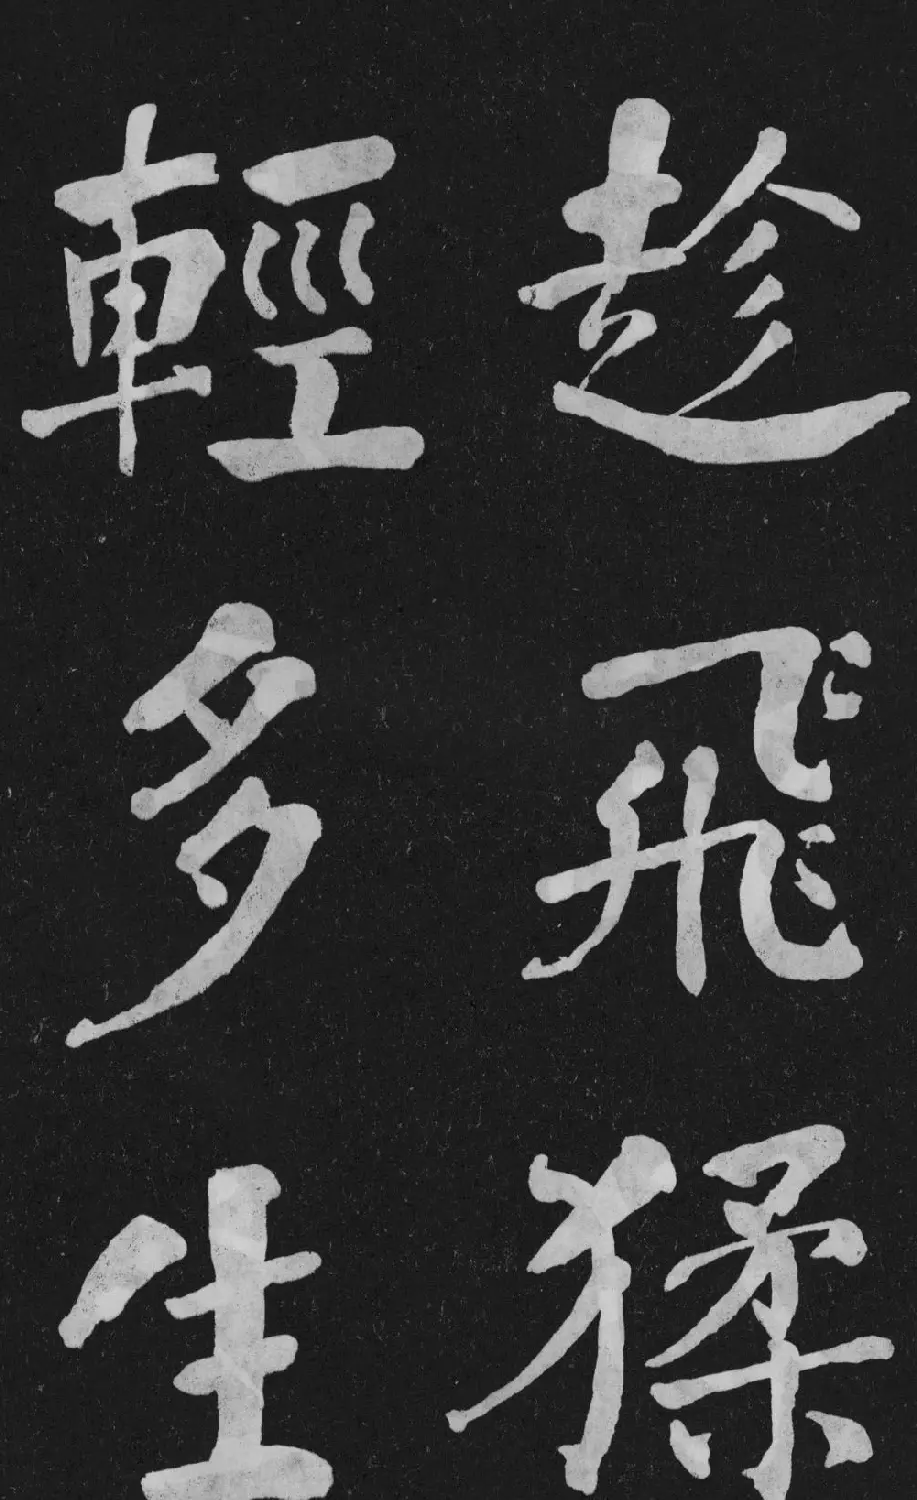 趁飛猱
輕多生